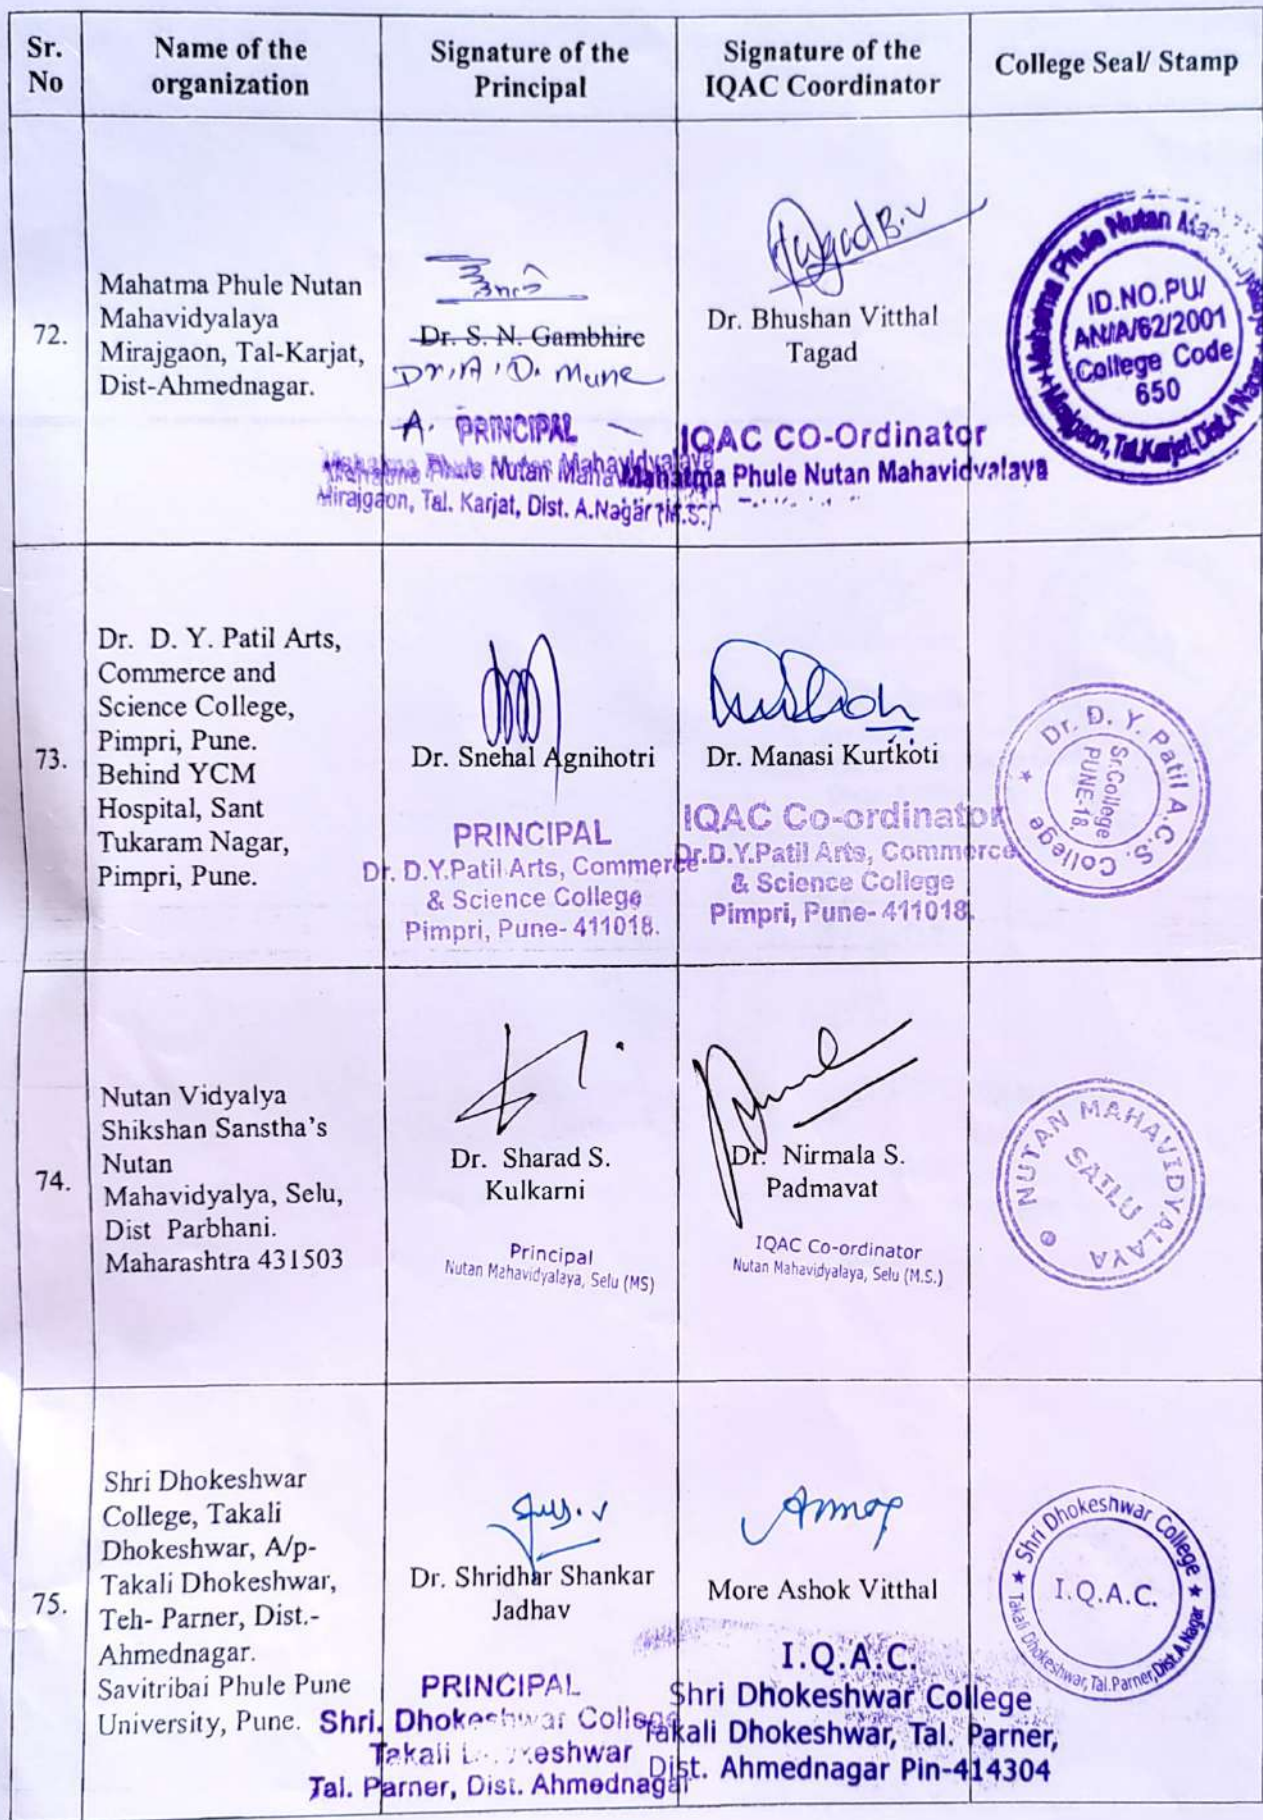 Sr. No
Name of the organization
Signature of the Principal
Signature of the IQAC Coordinator
College Seal/ Stamp
72.
Mahatma Phule Nutan
Mahavidyalaya
Mirajgaon, Tal-Karjat,
Dist-Ahmednagar.
Dr. S. N. Gambhire
Dr. A. D. Mune
A. PRINCIPAL
Mahatma Phule Nutan Mahavidyalaya
Mirajgaon, Tal. Karjat, Dist. A.Nagar (M.S.)
Tagad B.V
Dr. Bhushan Vitthal
Tagad
IQAC CO-Ordinator
Mahatma Phule Nutan Mahavidyalaya
Mahatma Phule Nutan
Mirajgaon, Tal.Karjat, Dist.A'Nagar
ID.NO.PU/
AN/A/62/2001
College Code
650
73.
Dr. D. Y. Patil Arts,
Commerce and
Science College,
Pimpri, Pune.
Behind YCM
Hospital, Sant
Tukaram Nagar,
Pimpri, Pune.
Dr. Snehal Agnihotri
PRINCIPAL
Dr. D.Y.Patil Arts, Commerce
& Science College
Pimpri, Pune- 411018.
Dr. Manasi Kurtkoti
IQAC Co-ordinator
Dr.D.Y.Patil Arts, Commerce
& Science College
Pimpri, Pune- 411018.
Dr. D. Y. Patil A.C.S. College
Sr.College
PUNE-18.
74.
Nutan Vidyalya
Shikshan Sanstha's
Nutan
Mahavidyalya, Selu,
Dist Parbhani.
Maharashtra 431503
Dr. Sharad S.
Kulkarni
Principal
Nutan Mahavidyalaya, Selu (MS)
Dr. Nirmala S.
Padmavat
IQAC Co-ordinator
Nutan Mahavidyalaya, Selu (M.S.)
NUTAN MAHAVIDYALAYA
SAILU
75.
Shri Dhokeshwar
College, Takali
Dhokeshwar, A/p-
Takali Dhokeshwar,
Teh- Parner, Dist.-
Ahmednagar.
Savitribai Phule Pune
University, Pune.
Dr. Shridhar Shankar
Jadhav
PRINCIPAL
Shri. Dhokeshwar College
Takali Dhokeshwar
Tal. Parner, Dist. Ahmednagar
More Ashok Vitthal
I.Q.A.C.
Shri Dhokeshwar College
Takali Dhokeshwar, Tal. Parner,
Dist. Ahmednagar Pin-414304
Shri Dhokeshwar College
Takali Dhokeshwar, Tal.Parner, Dist.A.Nagar
I.Q.A.C.